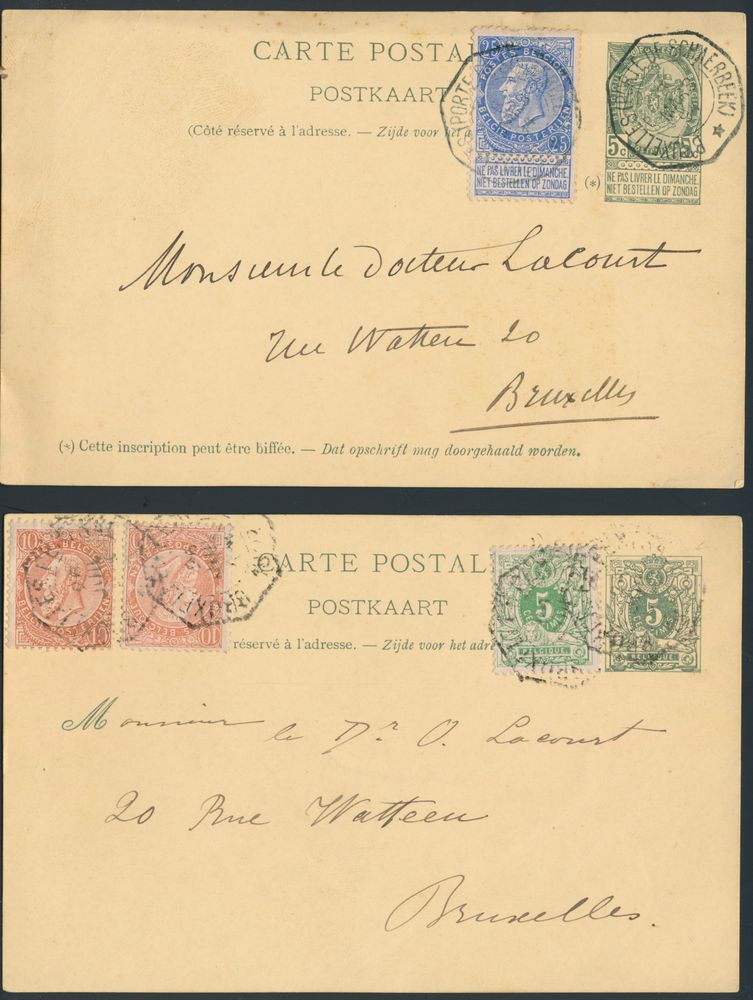 CARTE POSTAL
POSTKAART
(Côté réservé à l'adresse. — Zijde voor het a
25 POSTES BELGIQUE
BELGIE POSTERIJEN 25
NE PAS LIVRER LE DIMANCHE
NIET BESTELLEN OP ZONDAG
BRUXELLES (PORTE DE SCHAERBEEK)
5 C
(*) NE PAS LIVRER LE DIMANCHE
NIET BESTELLEN OP ZONDAG
Monsieur le Docteur Lacourt
rue Watteeu 20
Bruxelles
(*) Cette inscription peut être biffée. — Dat opschrift mag doorgehaald worden.
10 POSTES BELGIQUE 10
10 10
CARTE POSTAL
POSTKAART
réservé à l'adresse. — Zijde voor het adre
5
BELGIQUE
5
BELGIQUE
Monsieur le Dr O. Lacourt
20 Rue Watteeu
Bruxelles.